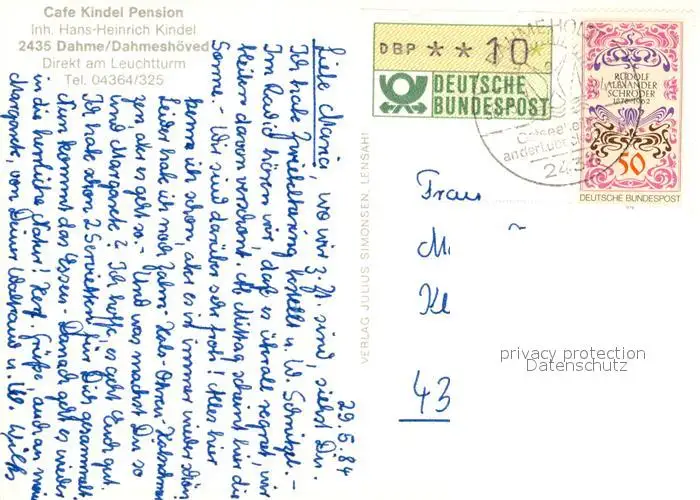 Cafe Kindel Pension
Inh. Hans-Heinrich Kindel
2435 Dahme/Dahmeshöved
Direkt am Leuchtturm
Tel. 04364/325
29.5.84
Liebe Maria, wo wir z. Zt. sind, siehst Du.
Ich habe Zwiebelhering bestellt u. W. Schnitzel. –
Im Radio hören wir, daß es überall regnet, wir
bleiben davon verschont. Ab Mittag scheint hier die
Sonne – Wir sind darüber sehr froh! Alles hier
kenne ich schon, aber es ist immer wieder schön
Leider habe ich noch Zahn-Hals-Ohren-
zen, aber es geht so. – Und was machst Du so
und Margarete? Ich hoffe, es geht Euch gut.
Ich habe schon 2 Servietten für Dich gesammelt
Nun kommt das Essen – Danach geht es wieder
in die herrliche Natur! Herzl. Grüße, auch an
Margarete, von Deiner Waltraud u. W.
VERLAG JULIUS SIMONSEN, LENSAHN
DBP ** 10 *
DEUTSCHE
BUNDESPOST
Ostsee
an der Lübecker
243
RUDOLF
ALEXANDER
SCHRÖDER
1878-1962
50
DEUTSCHE BUNDESPOST
1978
Frau
M
Kl
43
privacy protection
Datenschutz